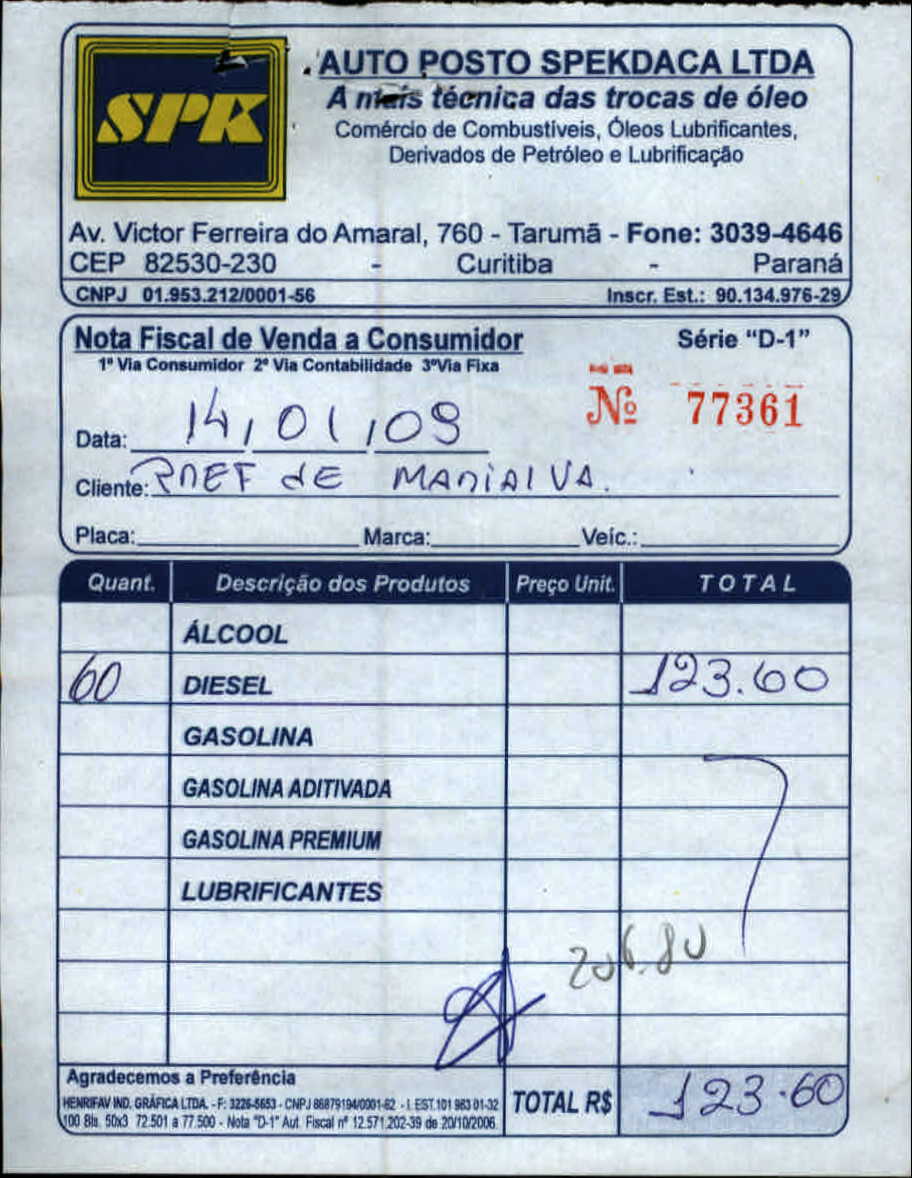 SPK
AUTO POSTO SPEKDACA LTDA
A mais técnica das trocas de óleo
Comércio de Combustíveis, Óleos Lubrificantes,
Derivados de Petróleo e Lubrificação
Av. Victor Ferreira do Amaral, 760 - Tarumã - Fone: 3039-4646
CEP 82530-230 - Curitiba - Paraná
CNPJ 01.953.212/0001-56 Inscr. Est.: 90.134.976-29
Nota Fiscal de Venda a Consumidor Série "D-1"
1ª Via Consumidor 2ª Via Contabilidade 3ªVia Fixa
Nº 77361
Data: 14/01/09
Cliente: PREF dE MARiAlVA.
Placa: Marca: Veíc.:
Quant. Descrição dos Produtos Preço Unit. TOTAL
ÁLCOOL
60 DIESEL 123.60
GASOLINA
GASOLINA ADITIVADA
GASOLINA PREMIUM
LUBRIFICANTES
206.80
Agradecemos a Preferência
HENRIFAV IND. GRÁFICA LTDA. - F: 3226-5653 - CNPJ 86879194/0001-62 - I. EST.101 963 01-32
100 Bls. 50x3 72.501 a 77.500 - Nota "D-1" Aut. Fiscal nº 12.571.202-39 de 20/10/2006
TOTAL R$ 123.60